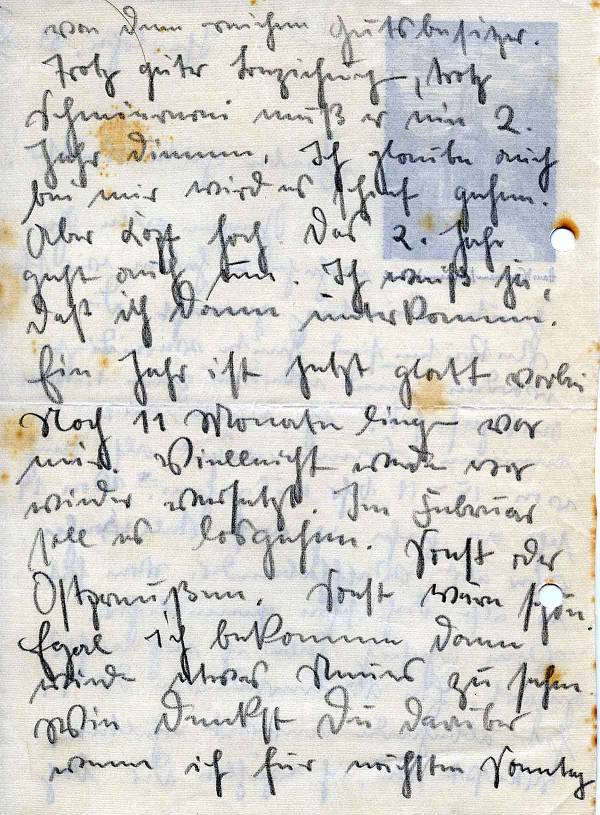 von dem reichen Gutsbesitzer.
Trotz guter Erziehung, trotz
Schmiererei muß er ein 2.
Jahr dienen. Ich glaube auch
bei mir wird es schief gehen.
Aber Kopf hoch. Das 2. Jahr
geht auch um. Ich weiß ja,
daß ich dann unterkomme.
Ein Jahr ist jetzt glatt vorbei
Noch 11 Monate liegen vor
mir. Vielleicht werden wir
wieder versetzt. Im Februar
soll es losgehen. Soest oder
Ostpreußen. Soest wäre schön.
Egal ich bekomme dann
wieder etwas Neues zu sehen.
Wie denkst Du darüber
wenn ich für nächsten Sonntag